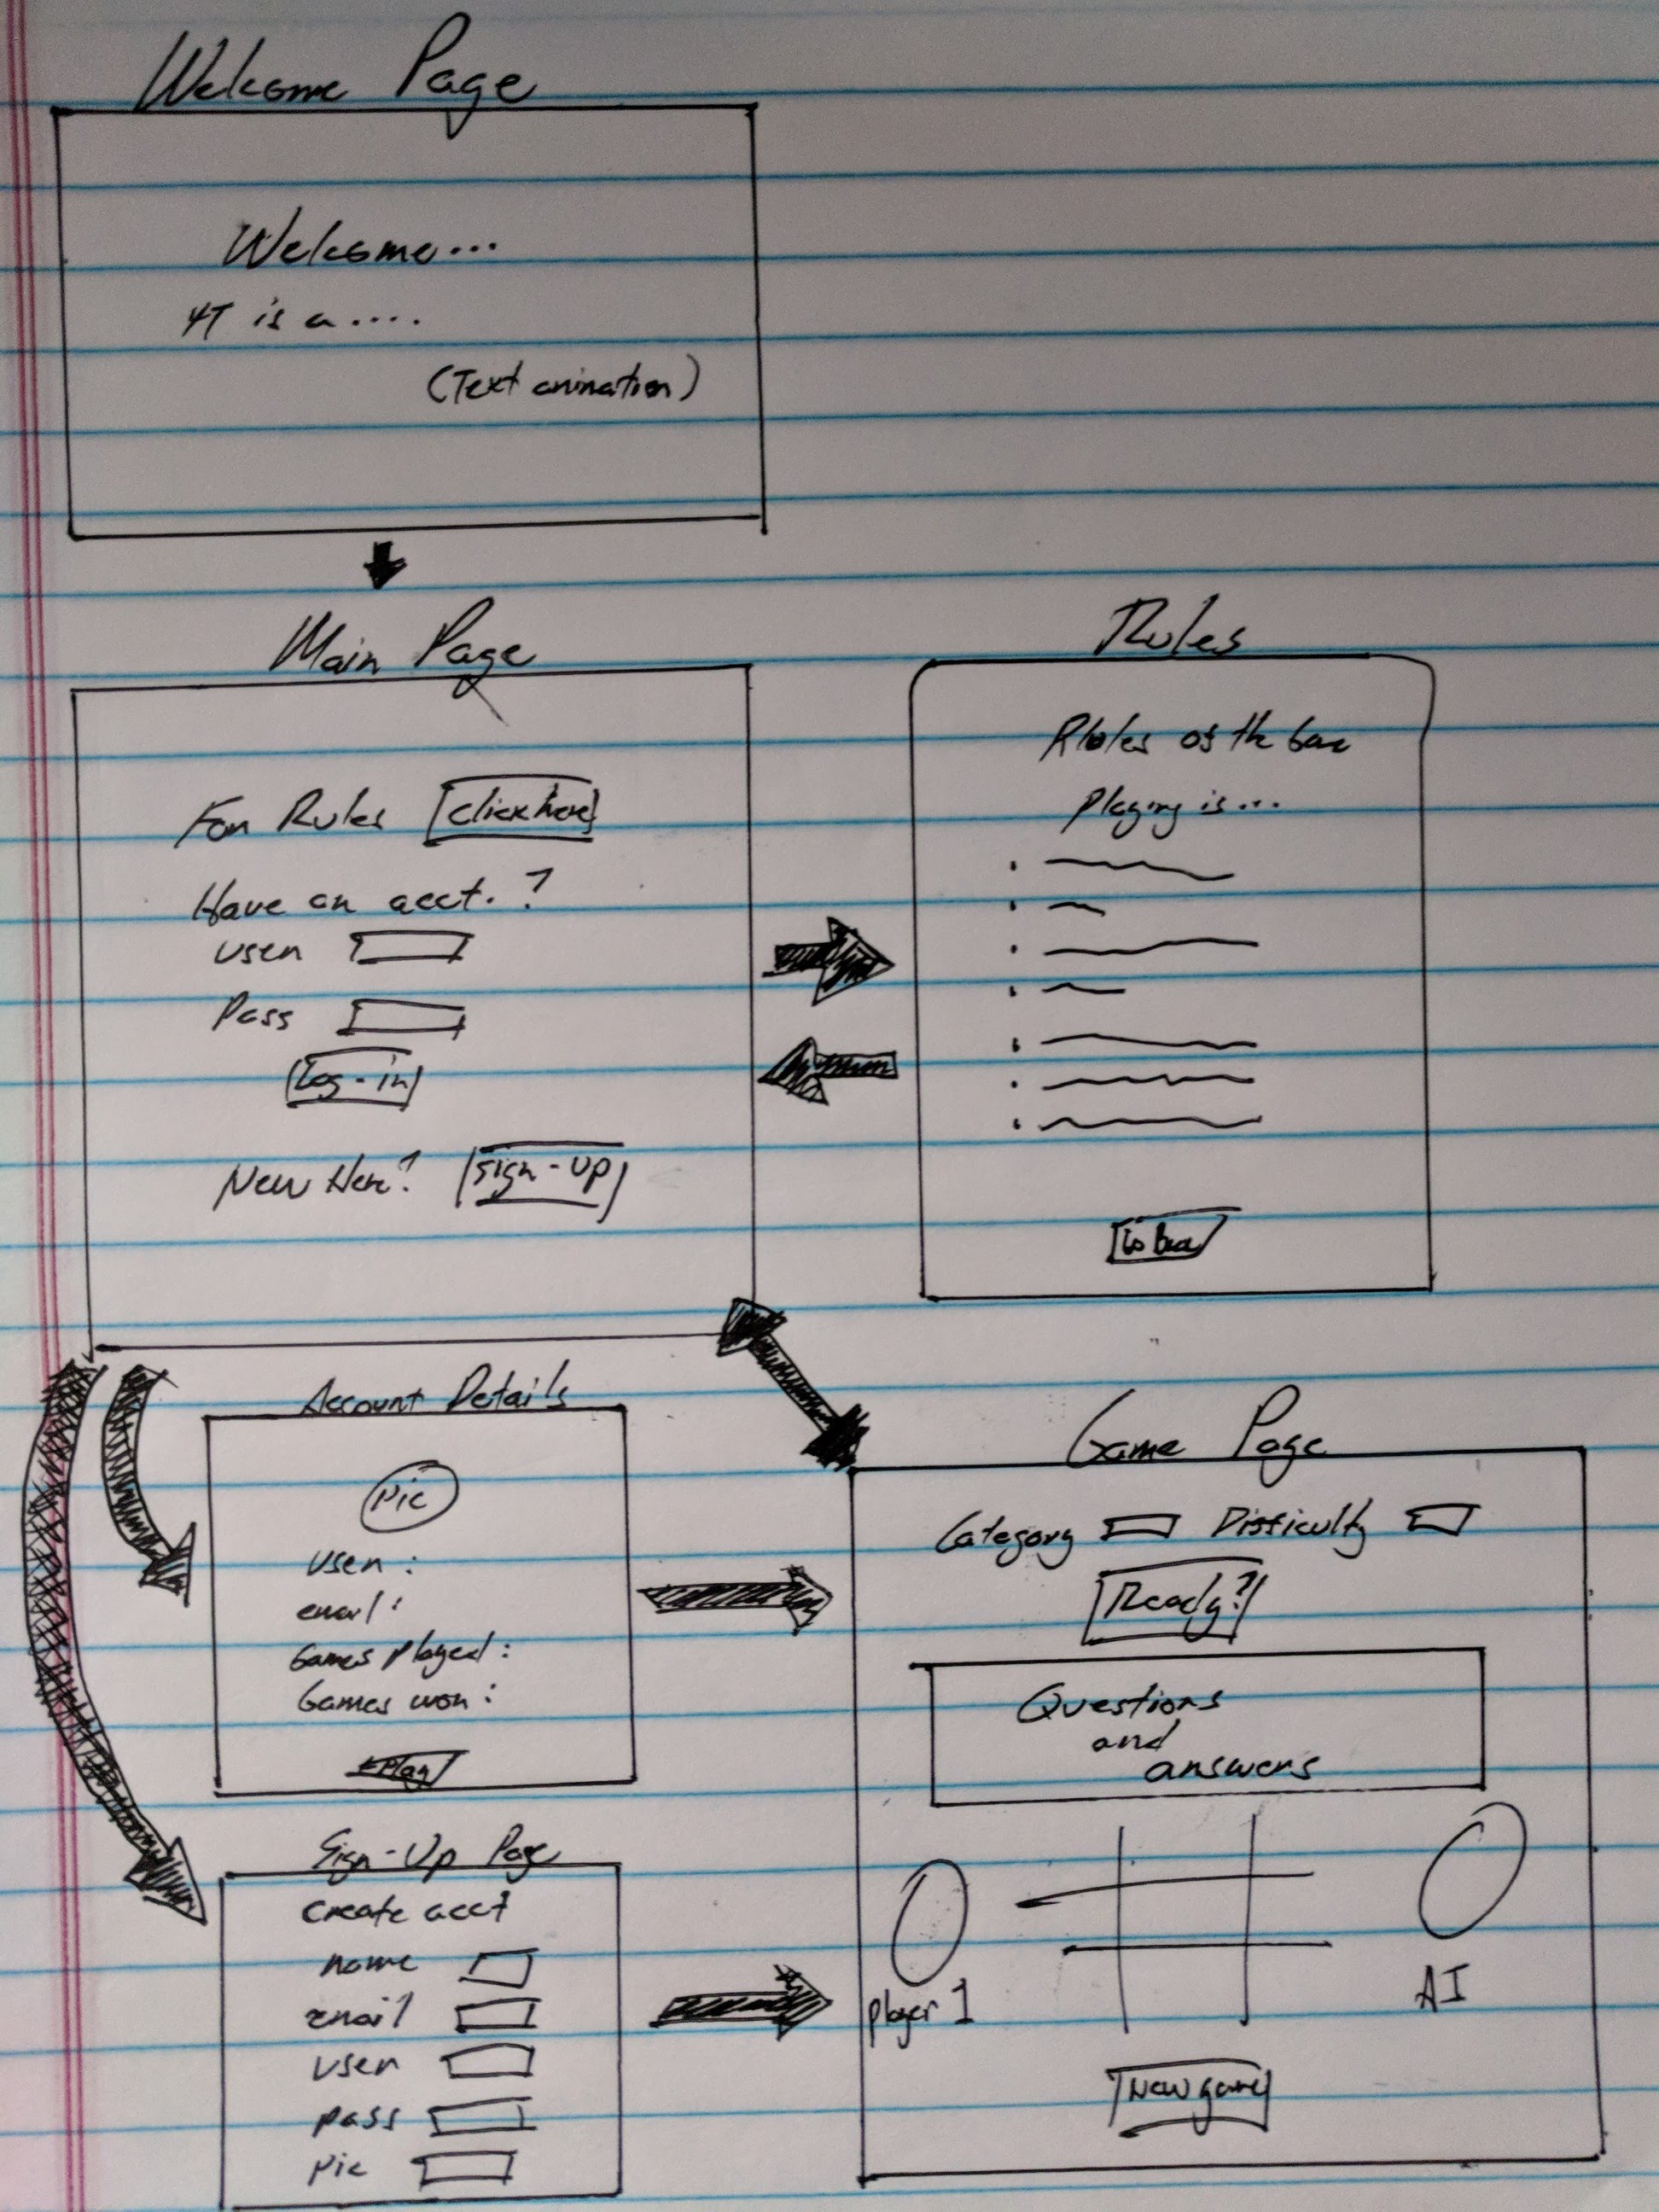 Welcome Page
Welcome...
4T is a ....
(Text animation)
Main Page
For Rules Click here
Have an acct.?
User
Pass
Log-in
New Here? Sign-up
Rules
Rules of the Game
Playing is...
Account Details
Pic
User:
email:
Games Played:
Games won:
Play
Sign-Up Page
Create acct
name
email
user
pass
pic
Game Page
Category Difficulty
Ready?
Questions
and
answers
Player 1
AI
New game